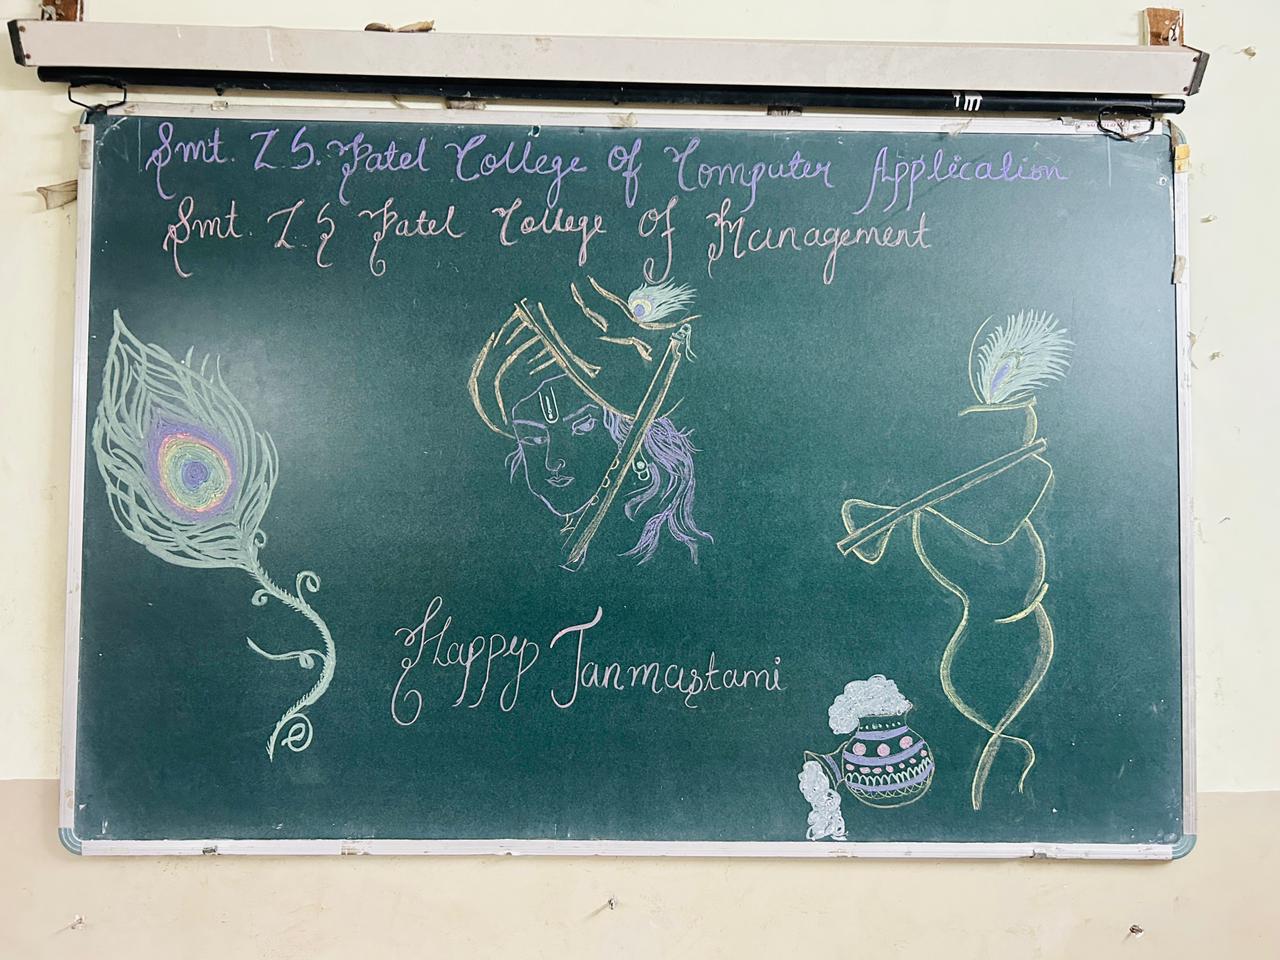 Smt. Z S. Patel College Of Computer Application
Smt. Z S Patel College Of Management
Happy Janmastami